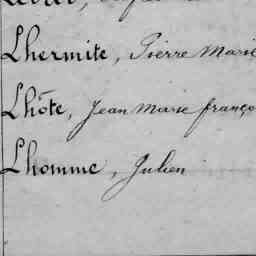 Lhermite, Pierre Marie
Lhôte, Jean Marie franço
Lhomme, Julien